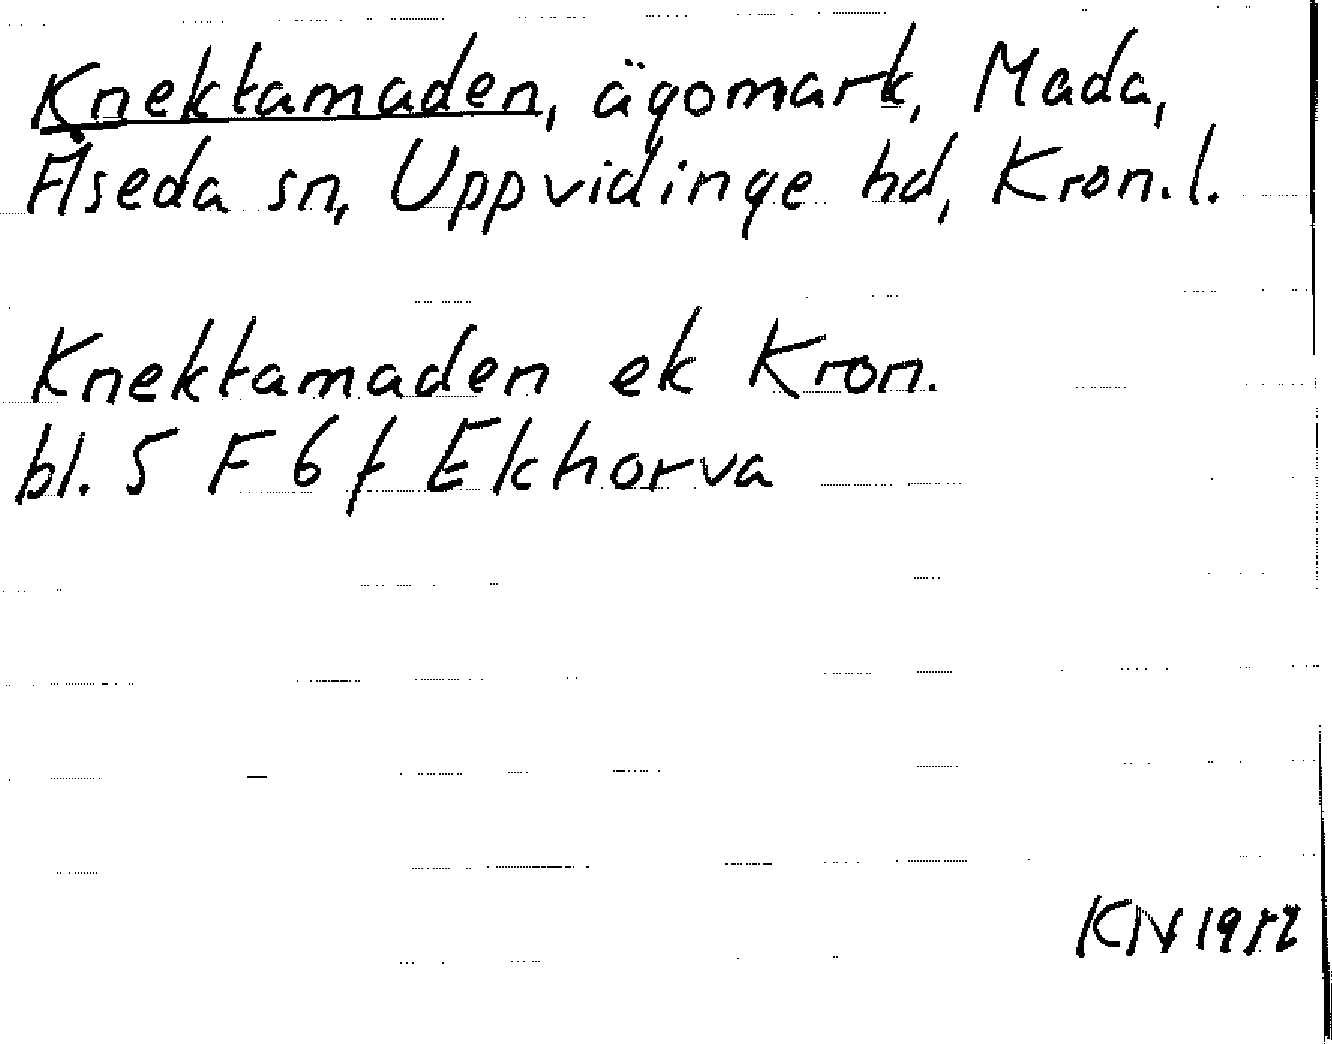 Knektamaden, ägomark, Mada,
Åseda sn, Uppvidinge hd, Kron.l.
Knektamaden ek Kron.
bl. 5 F 6 f Ekhorva
KN